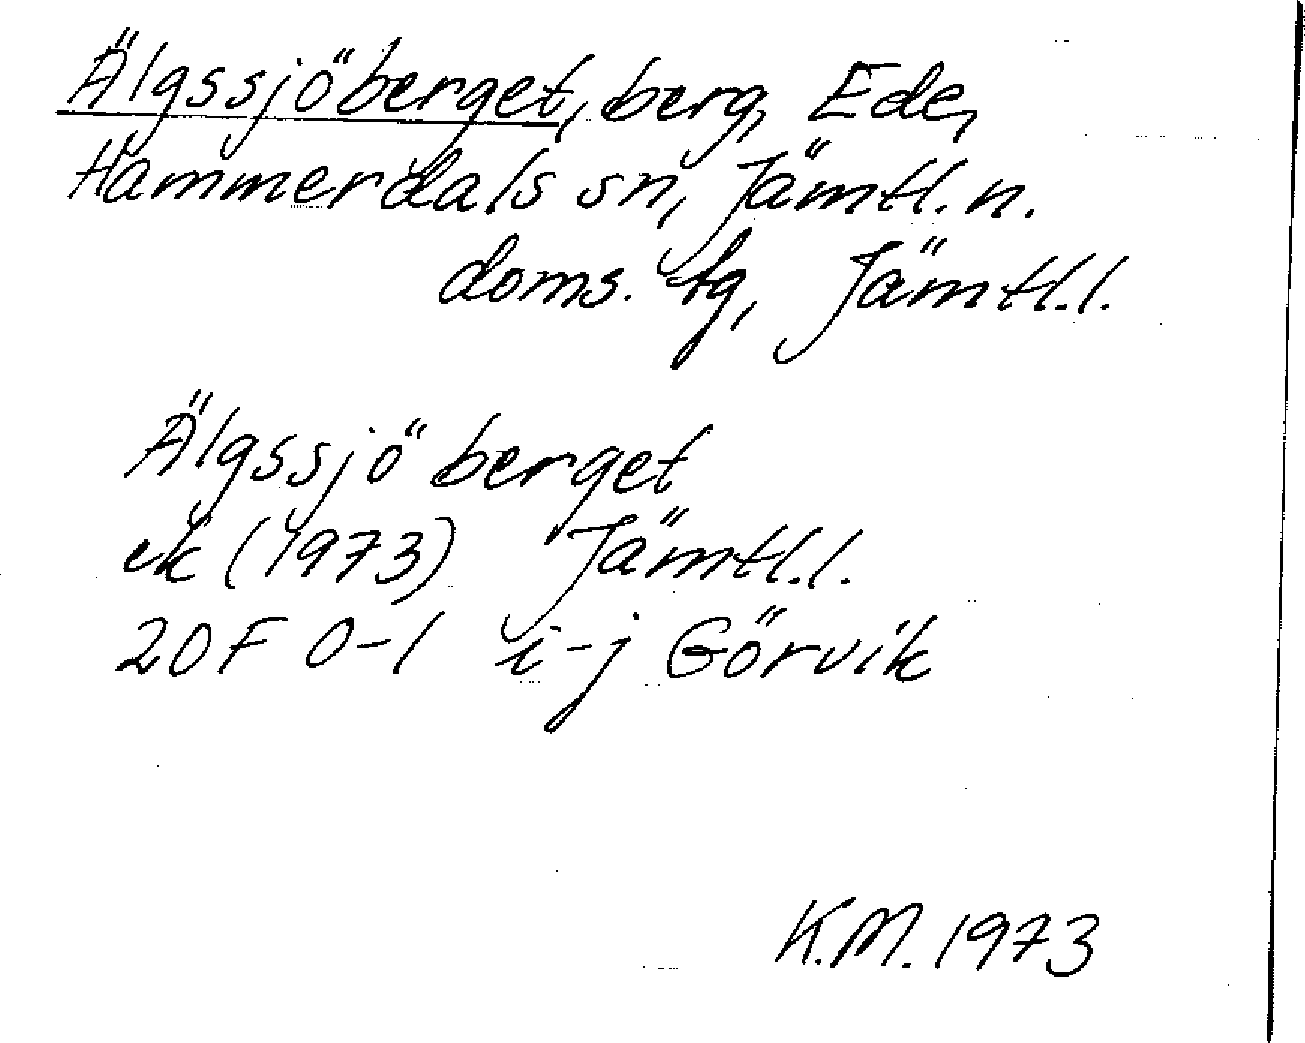 Älgssjöberget, berg, Ede,
Hammerdals sn, Jämtl. n.
doms. tg, Jämtl. l.
Älgssjöberget
ek (1973) Jämtl. l.
20F 0-1 i-j Görvik
K.M. 1973